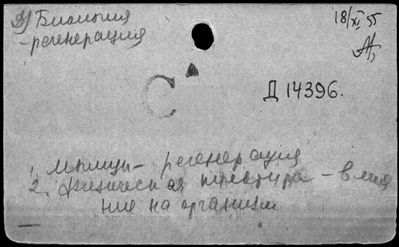 Биология
- регенерация
18/XI 55
С
Д 14396.
1. Мышцы - регенерация
2. Физическая культура - влия
ние на организм